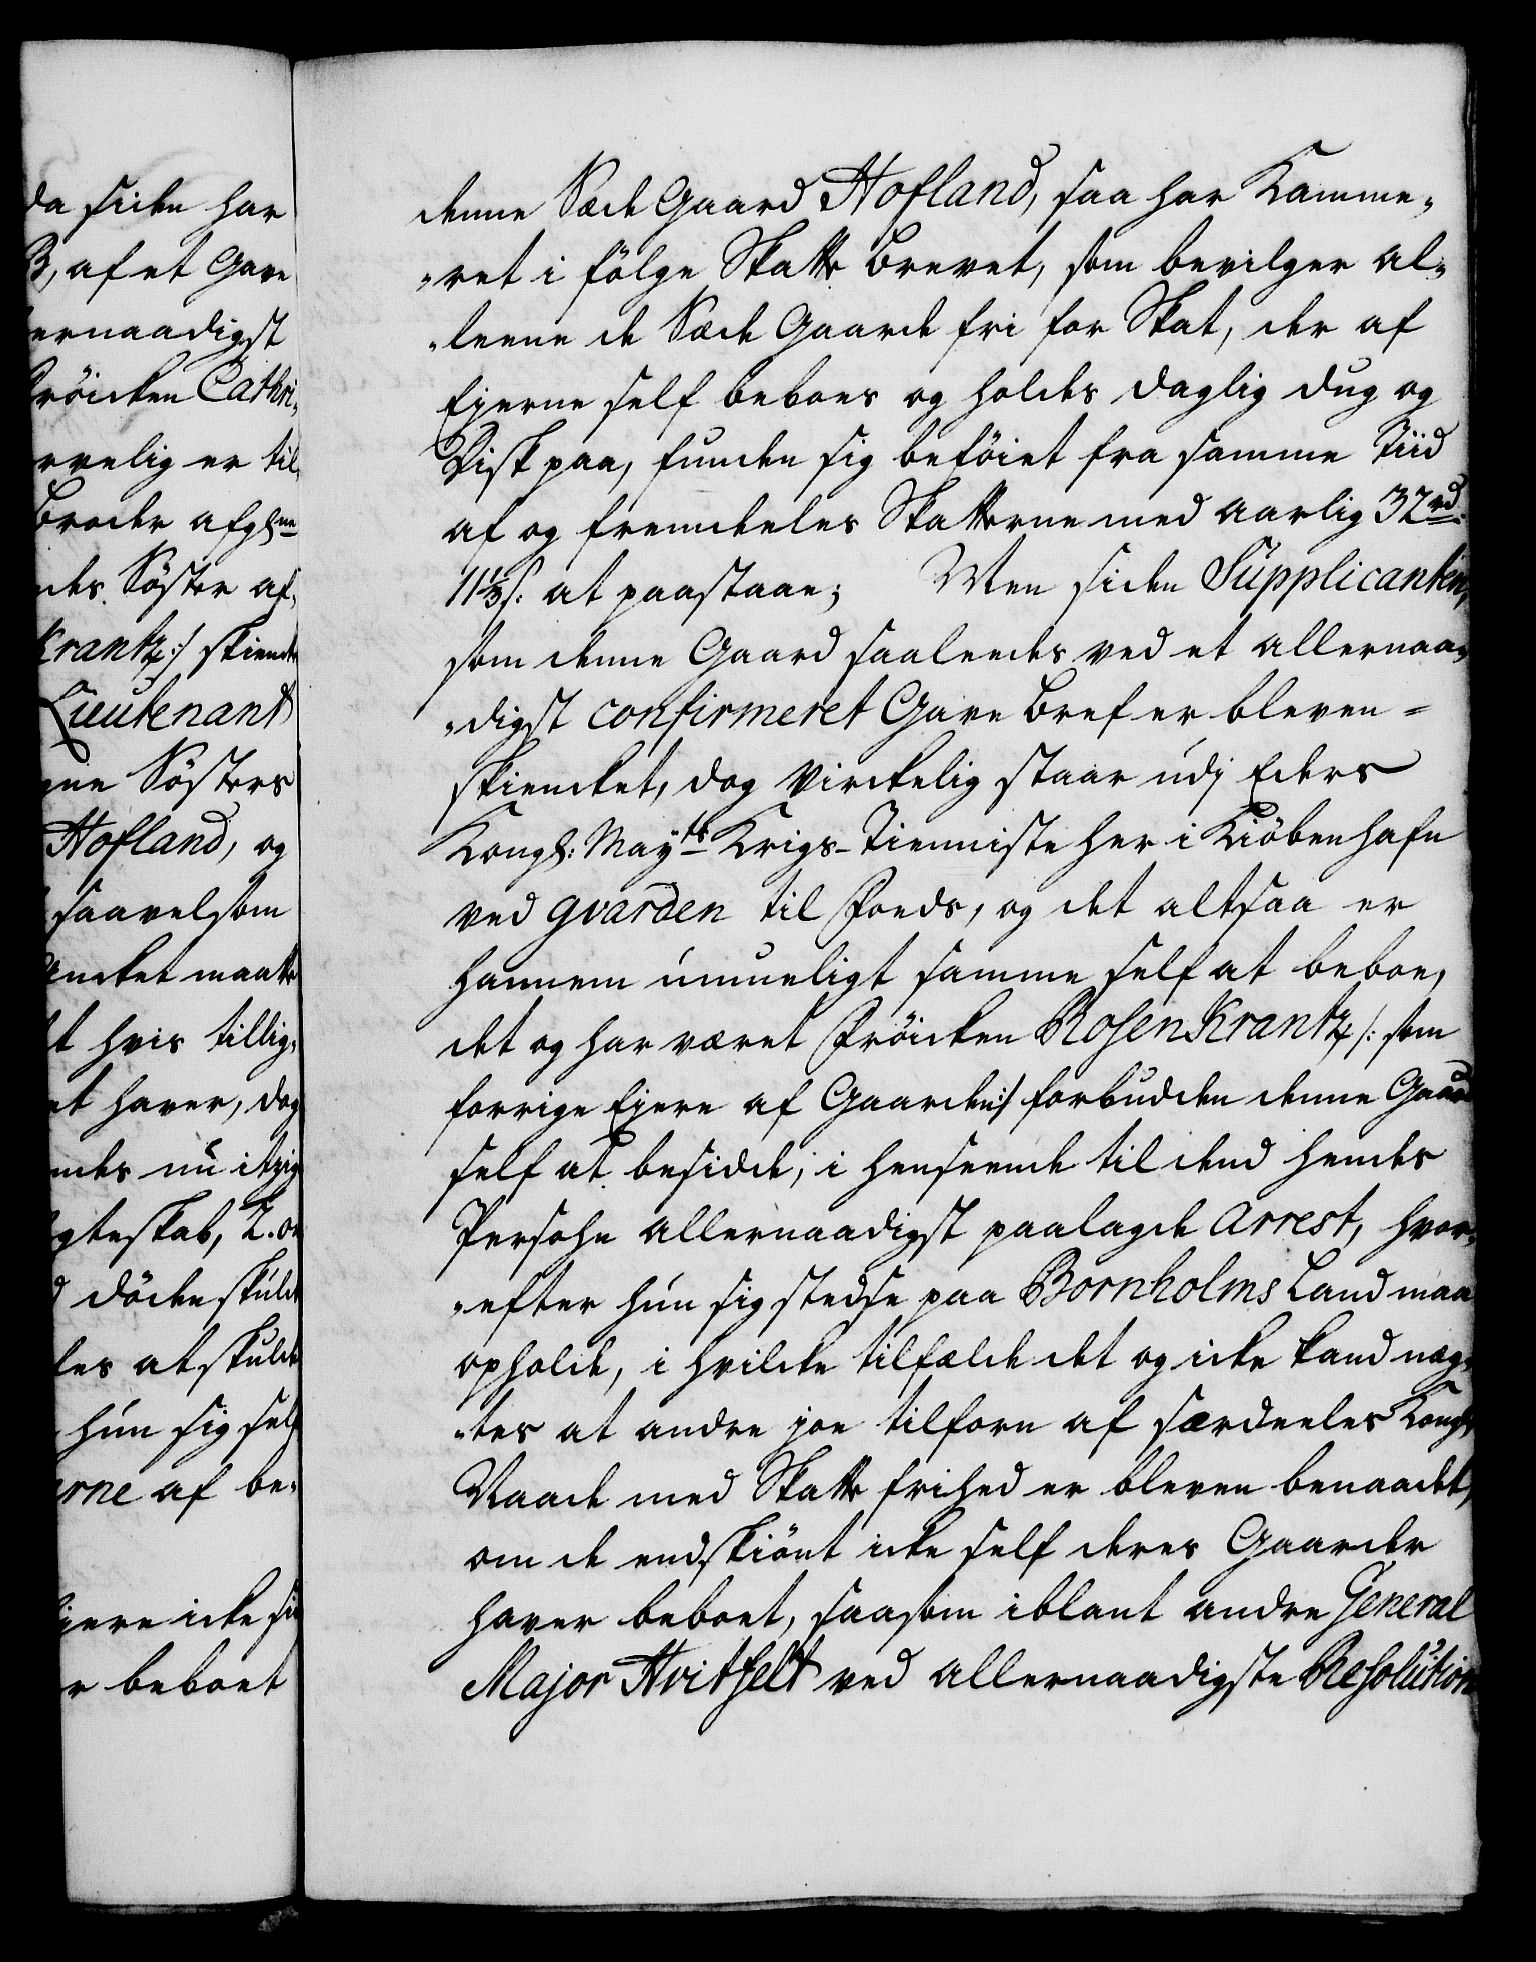 da siden har
3, af et Gave
ernaadigst
röicken Cathri-
rvelig er til-
broder afgl:ne
ndes Söster af-
Krantz:/ skienckt
Lieutenant
gne Sösters
Hofland, og
saavelsom
encket maatte
t hvis tillig-
et haver, dog
ndes nu itzig
gteskab, 2. or
döde skulde
les at skulde
hun sig self
rne af be-
jere icke si
r beboet
denne Sæde Gaard Hofland, saa har Kamme-
-ret i fölge Skatte brevet, som bevilger al-
-leene de Sæde Gaarde fri for Skat, der af
Ejerne self beboes og holdes daglig dug og
Disk paa, funden sig beföiet fra samme Tiid
af og fremdeles Skatterne med aarlig 32 rd.
11⅓ s: at paastaae; Men siden Supplicanten,
som denne Gaard saaleedes ved et allernaa-
-digst confirmeret Gave bref er bleven =
skiencket, dog virckelig staar udj Eders
Kongl: Mayts Krigs-Tienniste her i Kiöbenhafn
ved gvarden til Foeds, og det altsaa er
hannem umueligt samme self at beboe,
det og har været Fröicken Rosenkrantz /: som
forrige Ejere af Gaarden:/ forbudden denne Gaard
self at besidde, i henseende til dend hendes
Persohn allernaadigst paalagde Arrest, hvor-
-efter hun sig stedse paa Bornholms Land maa
opholde, i hvilcke tilfælde det og icke kand næg-
-tes at andre joe tilforn af særdeeles Kongl:
Naade med Skatte frihed er bleven benaadet,
om de endskiönt icke self deres Gaarder
haver beboet, saasom iblant andre General
Major Hvitfelt ved allernaadigste Resolution